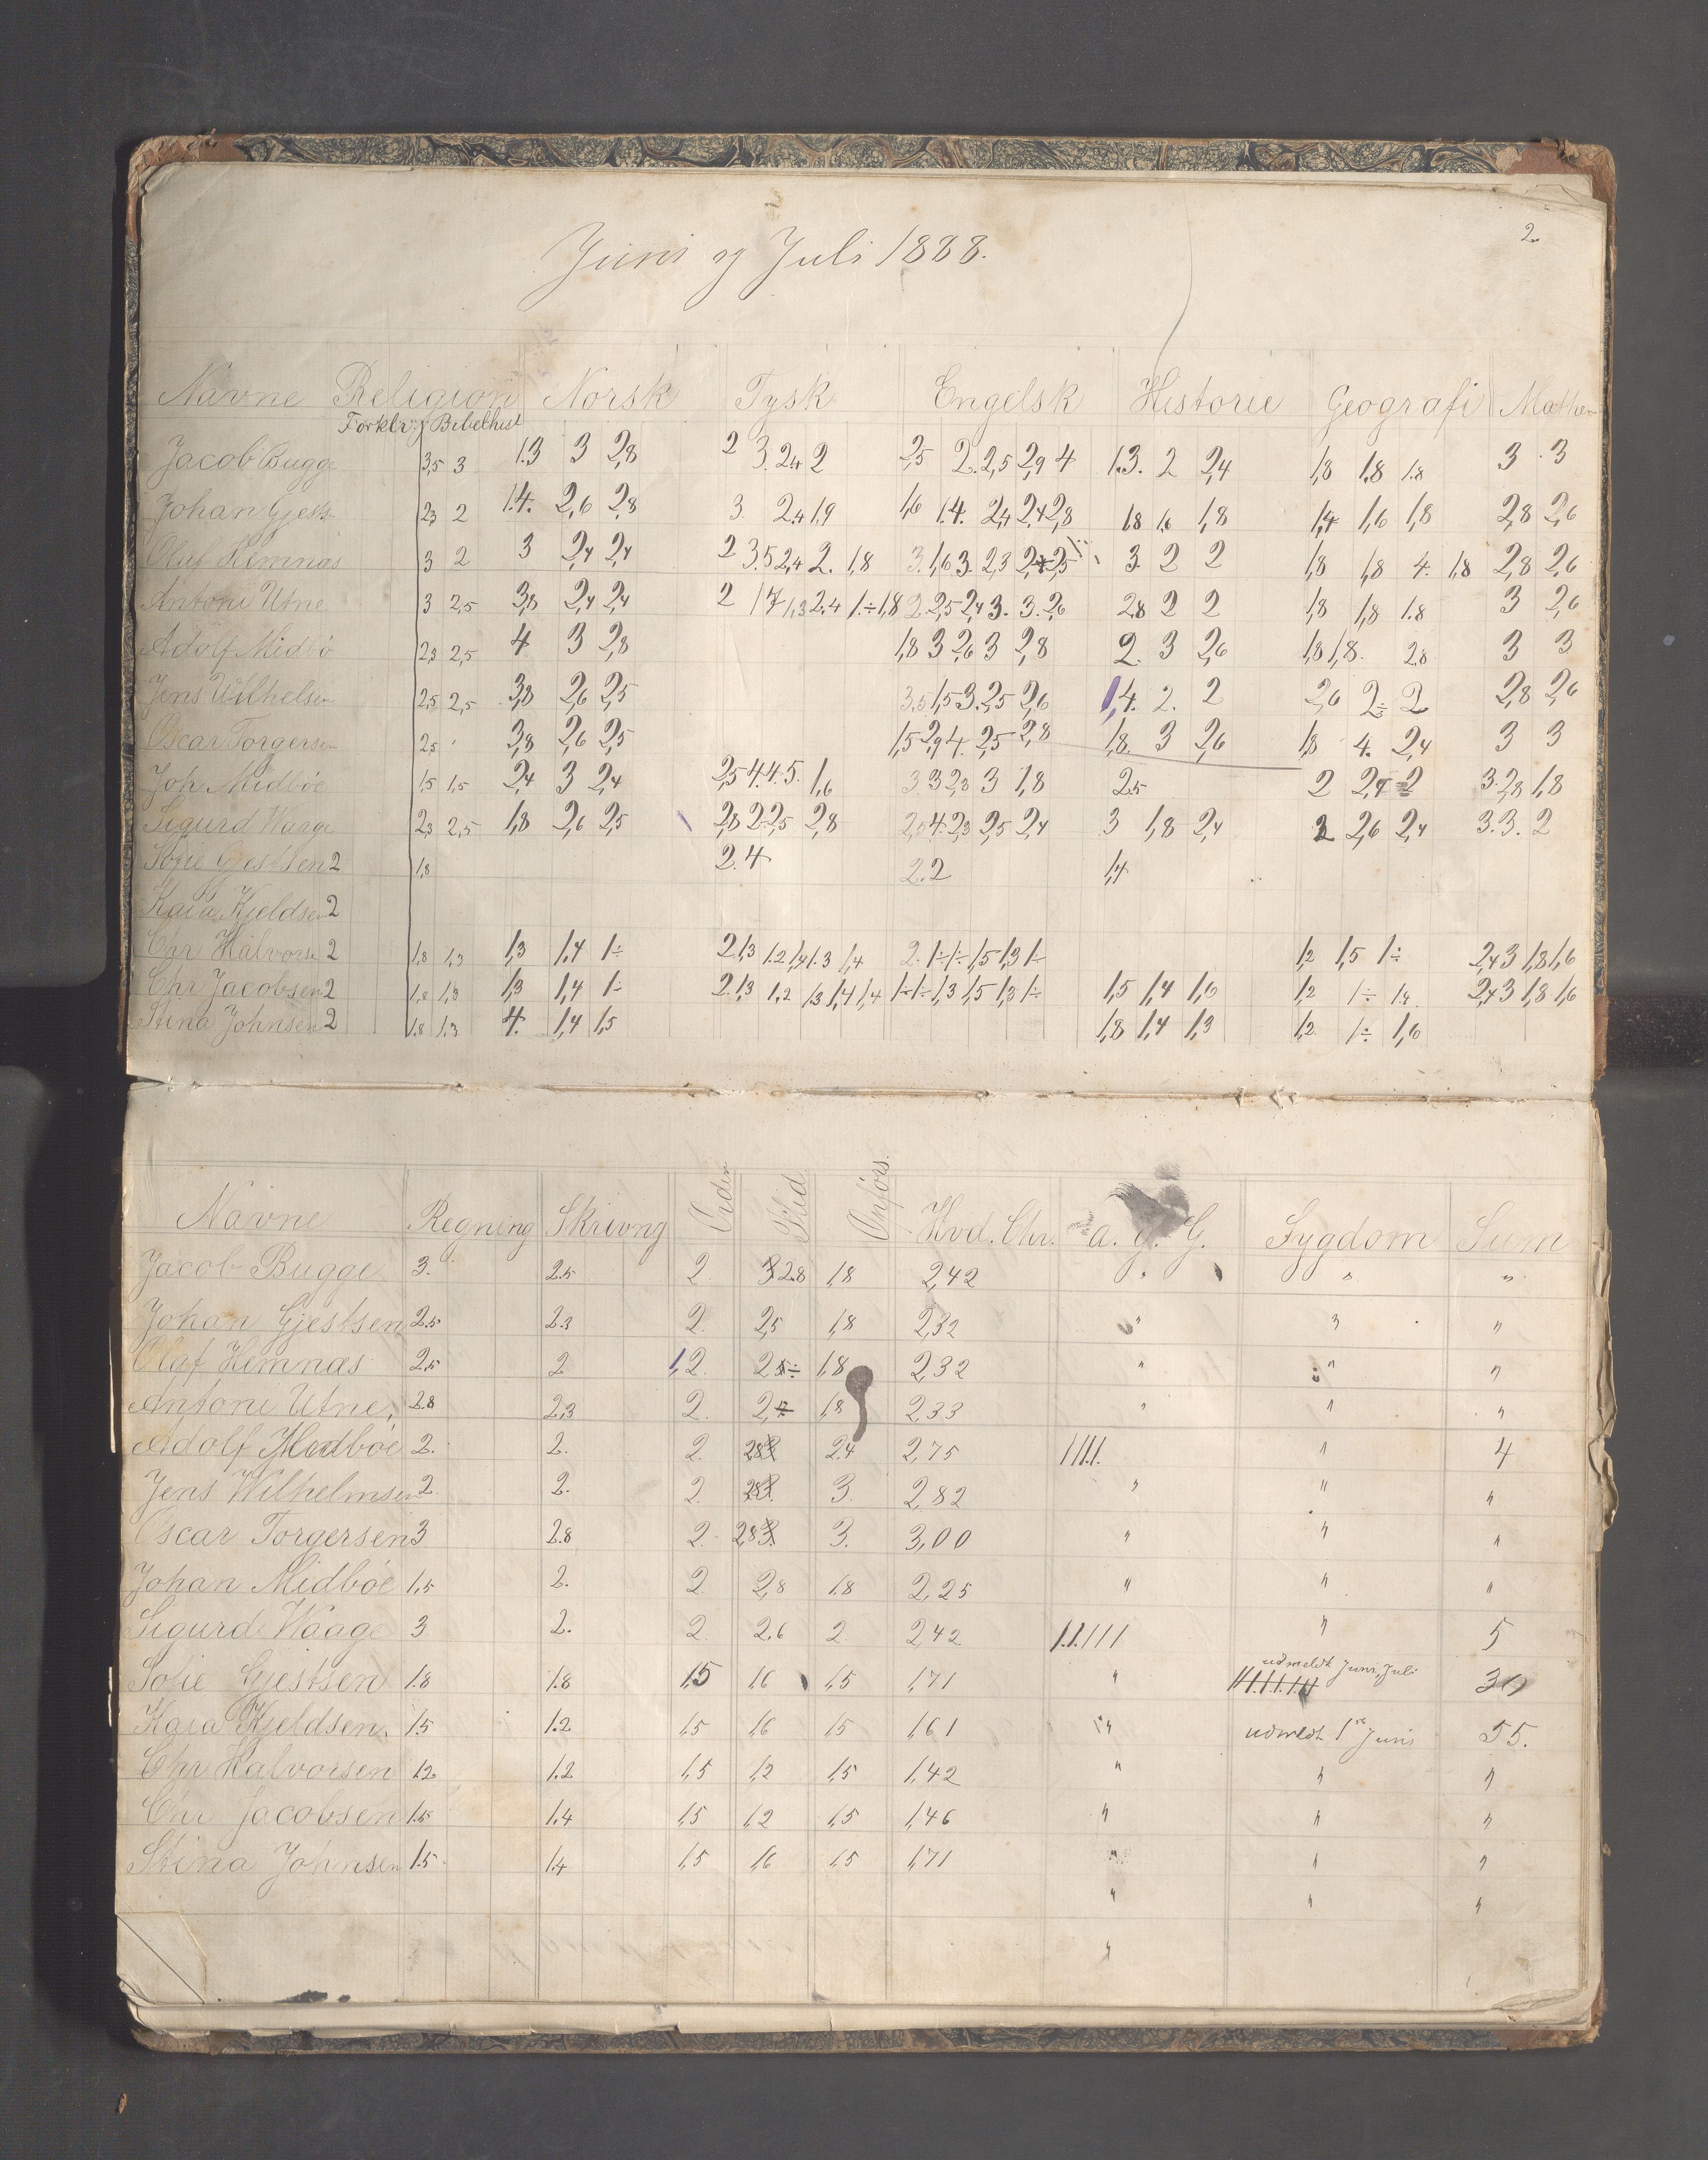 2.
Juni og Juli 1888.
Navne Religion Norsk Tysk Engelsk Historie Geografi Mathem
Forklr. Bibelhist
Jacob Bugge 3,5 3 1.3 3 2,8 2 3. 2,4 2 2,5 2. 2,5 2,9 4 1.3. 2 2,4 1,8 1,8 1.8 3 3
Johan Gjests 2,3 2 1.4. 2,6 2,8 3. 2,4 1,9 1,6 1.4. 2,4 2,4 2,8 1,8 1,6 1,8 1,4 1,6 1,8 2,8 2,6
Oluf Hemnæs 3 2 3 2,4 2,4 2 3.5 2,4 2. 1,8 3. 1,6 3. 2,3 2,5 3. 2 2 1,8 1,8 4. 1,8 2,8 2,6
Antoni Utne 3 2,5 3,8 2,4 2,4 2 1,3 2.4 1÷ 1,8 2. 2,5 2,4 3. 3. 2,6 2,8 2 2 1,8 1,8 1.8 3 2,6
Adolf Midbö 2,3 2,5 4. 3 2,8 1,8 3 2,6 3 2,8 2. 3 2,6 1,8 1,8. 2,8 3 3
Jens Wilhelsen 2,5 2,5 3,8 2,6 2,5 3.5 1,5 3. 2,5 2,6 1,4. 2. 2 2,6 2÷ 2 2,8 2,6
Oscar Torgersen 2,5 3,8 2,6 2,5 1,5 2,9 4. 2,5 2,8 1,8. 3 2,6 1,8 4. 2,4 3 3
Joh Midböe 1,5 1,5 2,4 3 2,4 2,5 4. 4. 5. 1,6 3 3 2,3 3 1,8 2,5 2 2,4 2 3. 2,8 1,8
Sigurd Waage 2,3 2,5 1,8 2,6 2,5 2,8 2 2,5 2,8 4. 2,3 2,5 2,4 3 1,8 2,4 2 2,6 2,4 3. 3. 2
Sofie Gjestsen 2 1,8 2. 4 2. 2 1,4
Kaia Kjeldsen 2
Chr Halvorse 2 1,8 1,3 1,3 1,4 1÷ 2 1,3 1.2 1,4 1.3 1,4 2. 1÷ 1÷ 1,5 1,3 1÷ 1,2 1,5 1÷ 2,4 3 1,8 1,6
Chr Jacobsen 2 1,8 1,3 1,3 1,4 1÷ 2. 1,3 1,2 1,3 1,4 1,4 1÷ 1÷ 1,3 1,5 1,3 1÷ 1,5 1,4 1,6 1,2 1÷ 1,4 2,4 3 1,8 1,6
Stina Johnsen 2 1,8 1,3 4. 1,4 1,5 1,8 1,4 1,3 1,2 1÷ 1,6
Navne Regning Skrivng Orden Flid Opförs. Hvd. Chr. a. g. G. Sygdom Sum
Jacob Bugge 3. 2.5 2. 3 2.8 1,8 2,42 " " "
Johan Gjestsen 2.5 2.3 2. 2,5 1,8 2,32 " " "
Olaf Hemnæs 2,5 2 1,2. 2,5÷ 1,8 2,32 " " "
Antoni Utne, 2.8 2,3 2. 2,÷ 1,8 2,33 " " "
Adolf Midböe 2. 2. 2. 2,8 3 2,4 2,75 1111. " 4
Jens Wilhelmsen 2. 2. 2. 2,8 3. 3. 2,82 " " "
Oscar Torgersen 3 2.8 2. 2,8 3. 3. 3,00 " " "
Johan Midböe 1,5 2. 2. 2,8 1,8 2,25 " " "
Sigurd Waage 3 2. 2. 2,6 2. 2,42 11111 " 5
udmeldt Juni, Juli
Sofie Gjestsen 1.8 1.8 1,5 1,6 1,5 1,71 " 30
Kaia Kjeldsen. 1.5 1.2 1,5 1,6 1,5 1,61 " udmeldt 1ste Juni 55.
Chr Halvorsen 1.2 1.2 1,5 1,2 1,5 1,42 " " "
Chr Jacobsen 1.5 1,4 1,5 1,2 1,5 1,46 " " "
Stina Johnsen 1.5 1.4 1,5 1,6 1,5 1,71 " " "
" " "
"